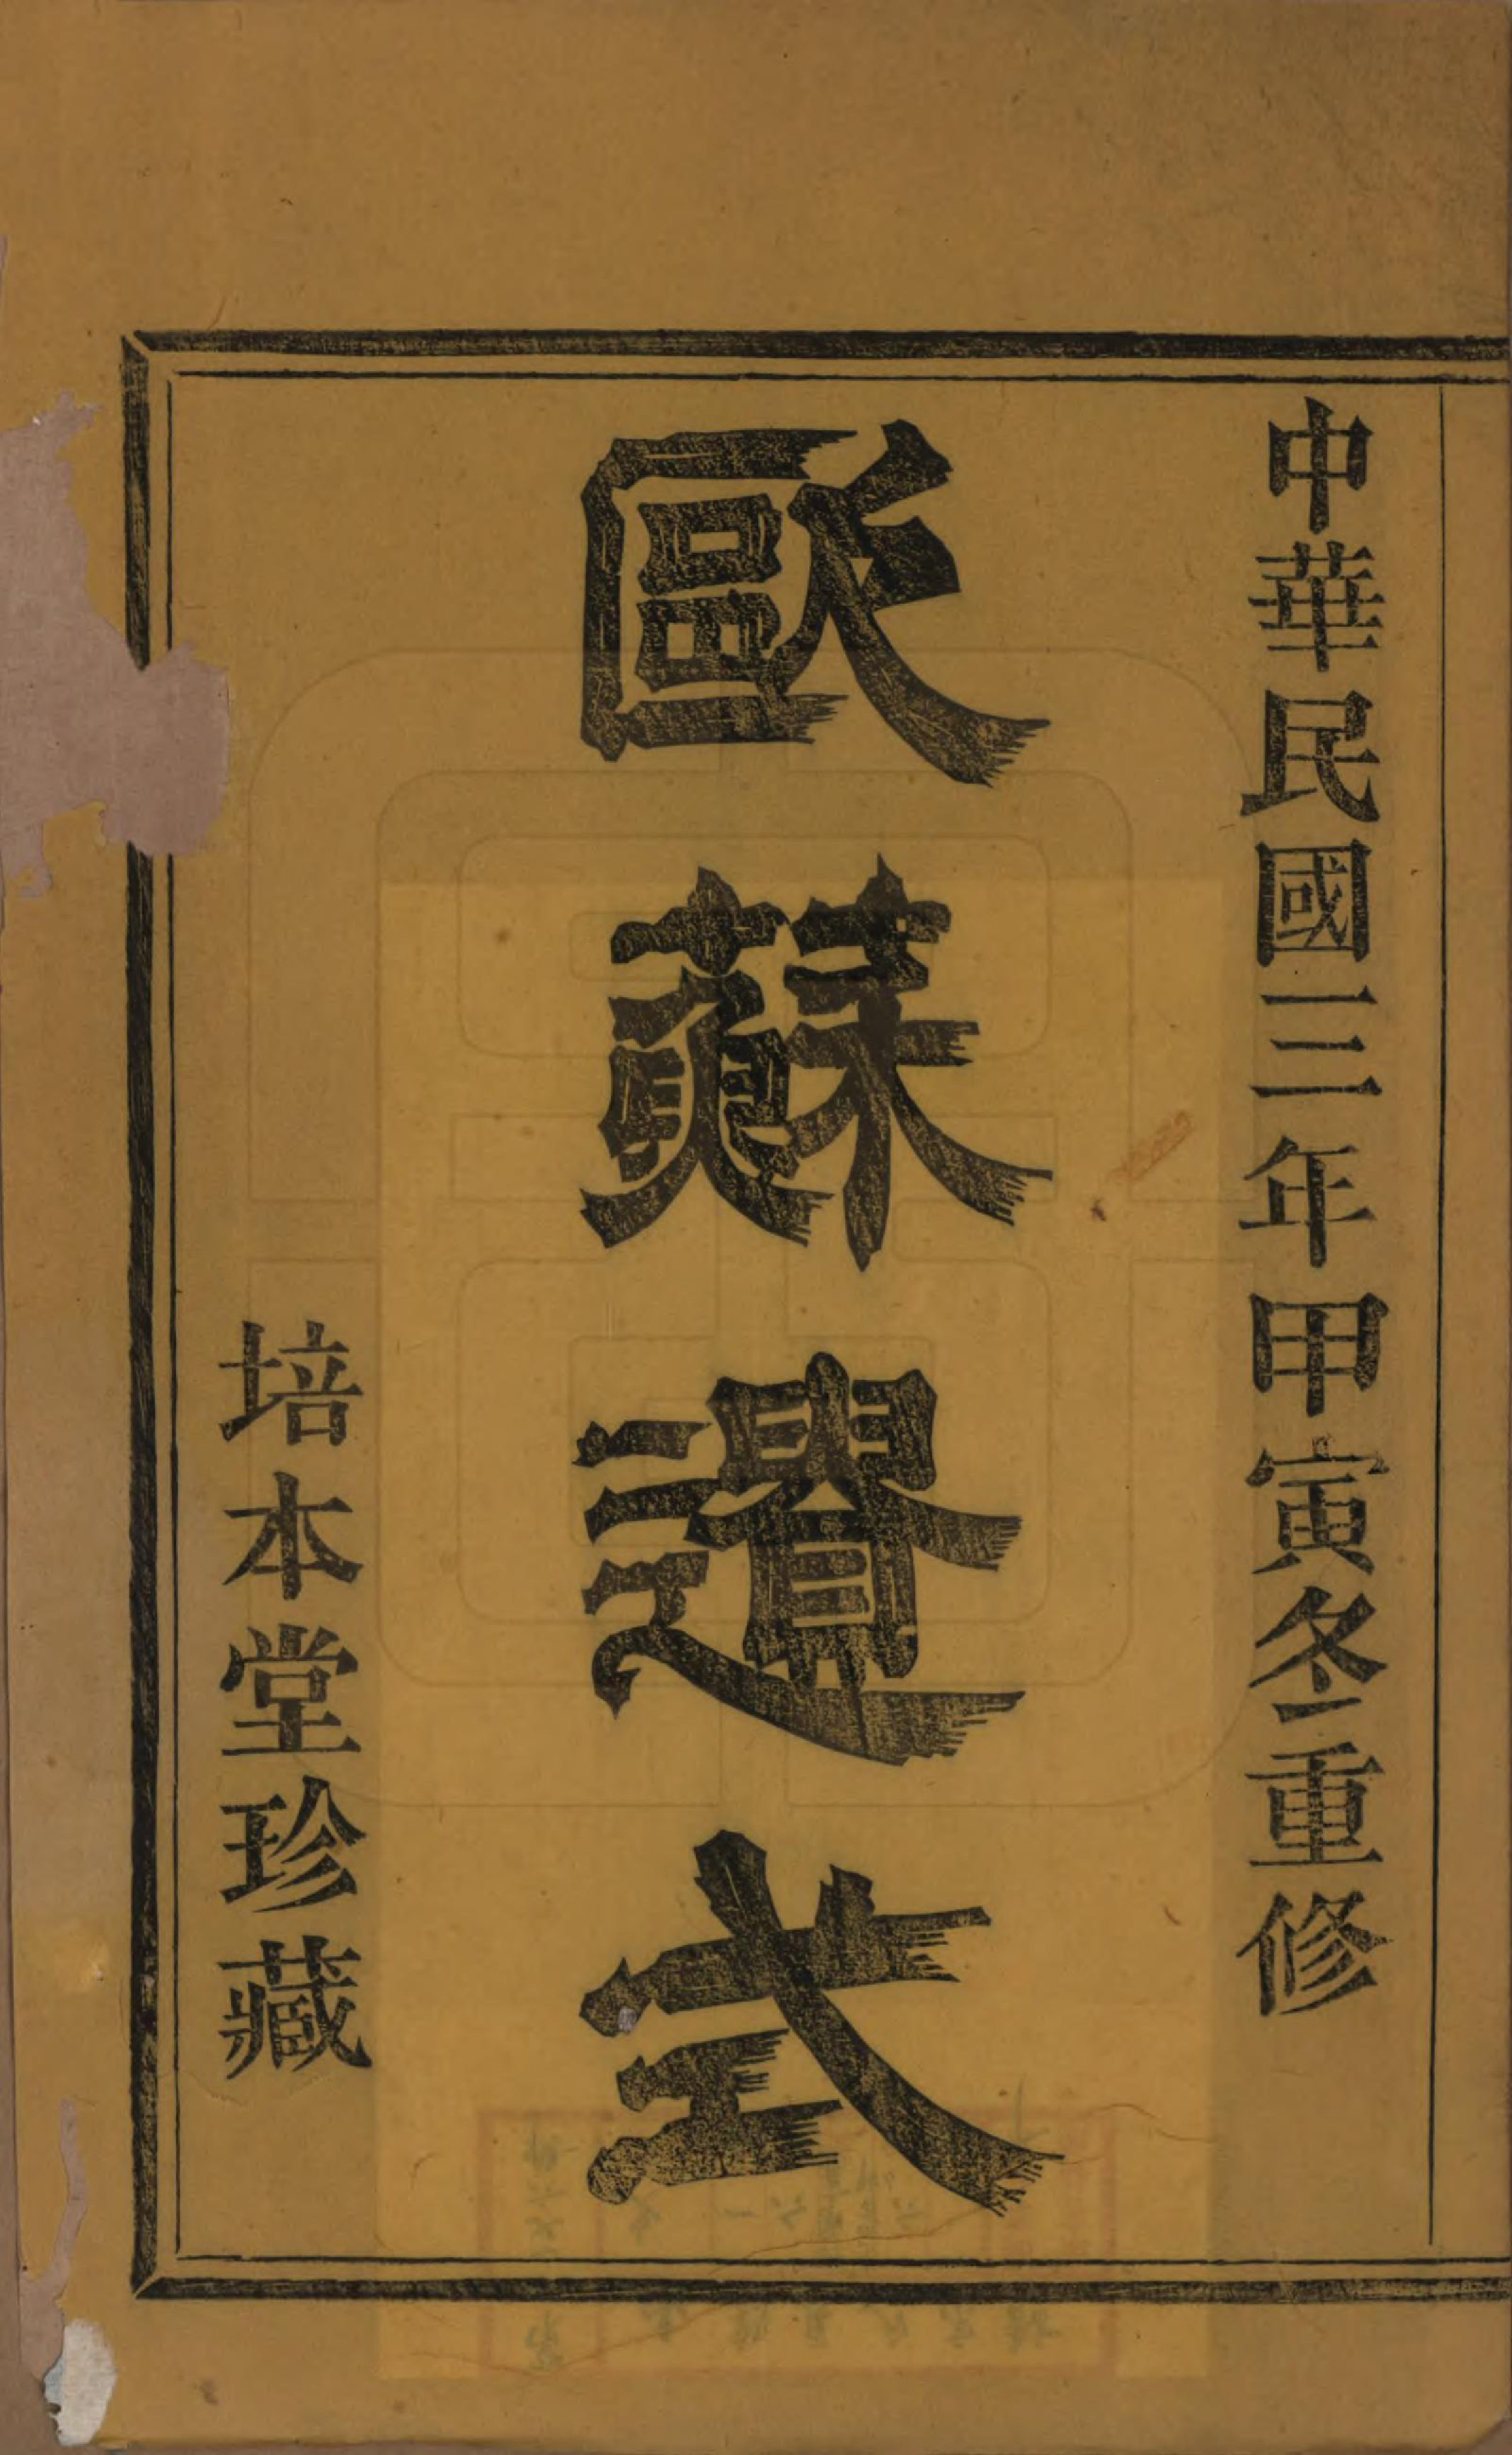 中華民國三年甲寅冬重修
歐蘇遺式
培本堂珍藏